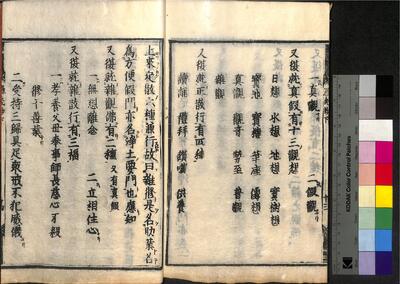 又復就真假有十三觀想
日想 水想 地想 寶樹想
寶池 寶樓 華座 像想
真觀 觀音 勢至 普觀
雜觀
又復就正散行有四種
讀誦 禮拜 讃嘆 供養
上來定散六種兼行故曰雜修是名助業名
為方便假門亦名淨土要門也應知
又復就雜觀亦有二種 又有真假
一 無相離念 二 立相住心
又復就雜散行有三福
一 孝養父母奉事師長慈心不殺
修十善業
二 受持三歸具足衆戒不犯威儀
KODAK Color Control Patches